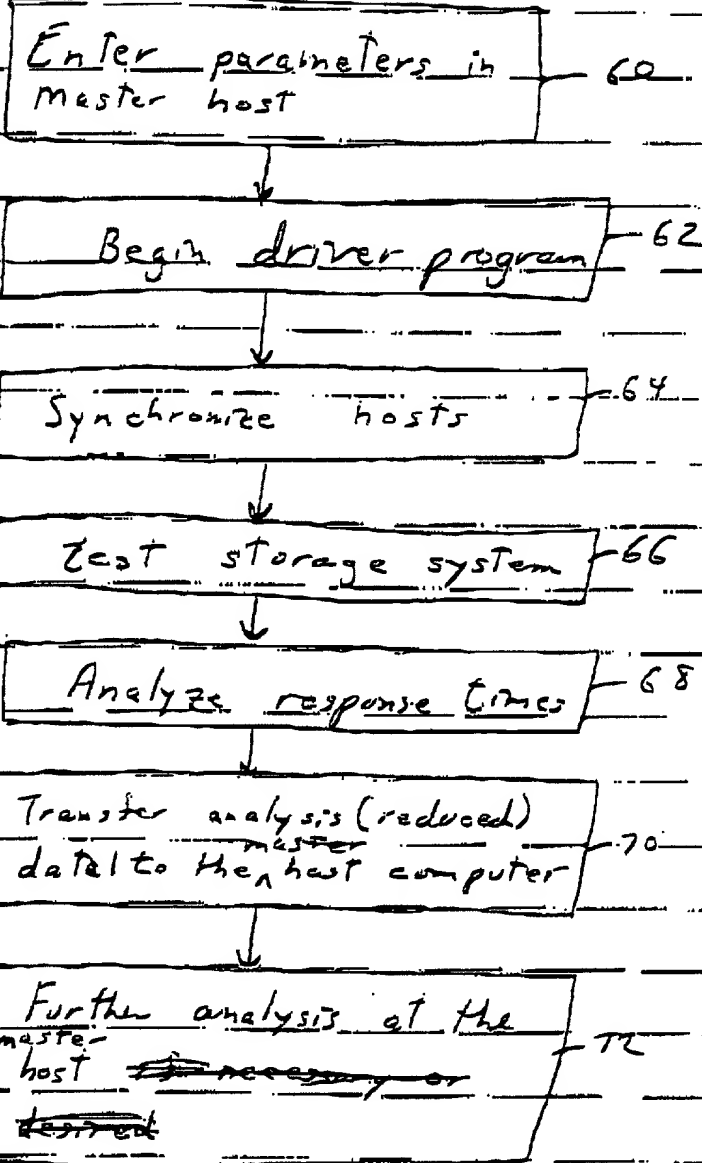 Enter parameters in 60
master host
Begin driver program 62
Synchronize hosts 64
test storage system 66
Analyze response times 68
Transfer analysis (reduced)
master 70
data to the ^ host computer
Further analysis at the
master 72
host if necessary or
desired